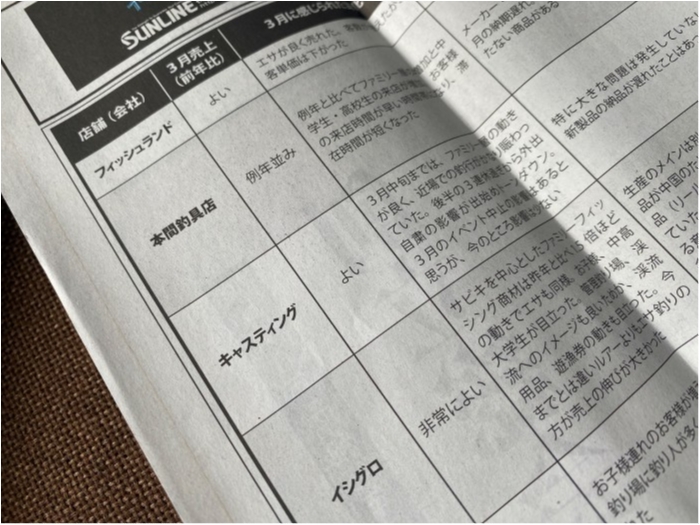 SUNLINE
店舗（会社）
3月売上
（前年比）
3月に感じられた
フィッシュランド
よい
エサが良く売れた。客数
客単価は下がった
本間釣具店
例年並み
例年と比べてファミリー層の
学生・高校生の来店が
の来店時間が早い時間
在時間が短くなった
加と中
お客様
、滞
キャスティング
よい
3月中旬までは、ファミリー層の動き
が良く、近場での釣行が
賑わっ
ていた。後半の3連休過ぎ
ら外出
自粛の影響が出始めトーンダウン。
3月のイベント中止の影響はあると
思うが、今のところ影響は少ない
イシグロ
非常によい
サビキを中心としたファミリーフィッ
シング商材は昨年と比べ1.5倍ほど
の動きでエサも同様。お子様、中高
大学生が目立った。管理釣り場、渓
流へのイメージも良いためか、渓流
用品、遊漁券の動きも目立った。今
までとは違いルアーよりもエサ釣りの
方が売上の伸びが大きかった
お子様連れのお客様が
釣り場に釣り人が多く
メーカー
月の納期遅れ
たない商品がある
特に大きな問題は発生していな
新製品の納品が遅れたことはあっ
生産のメインは
品が中国のた
品（リー
ている
あ